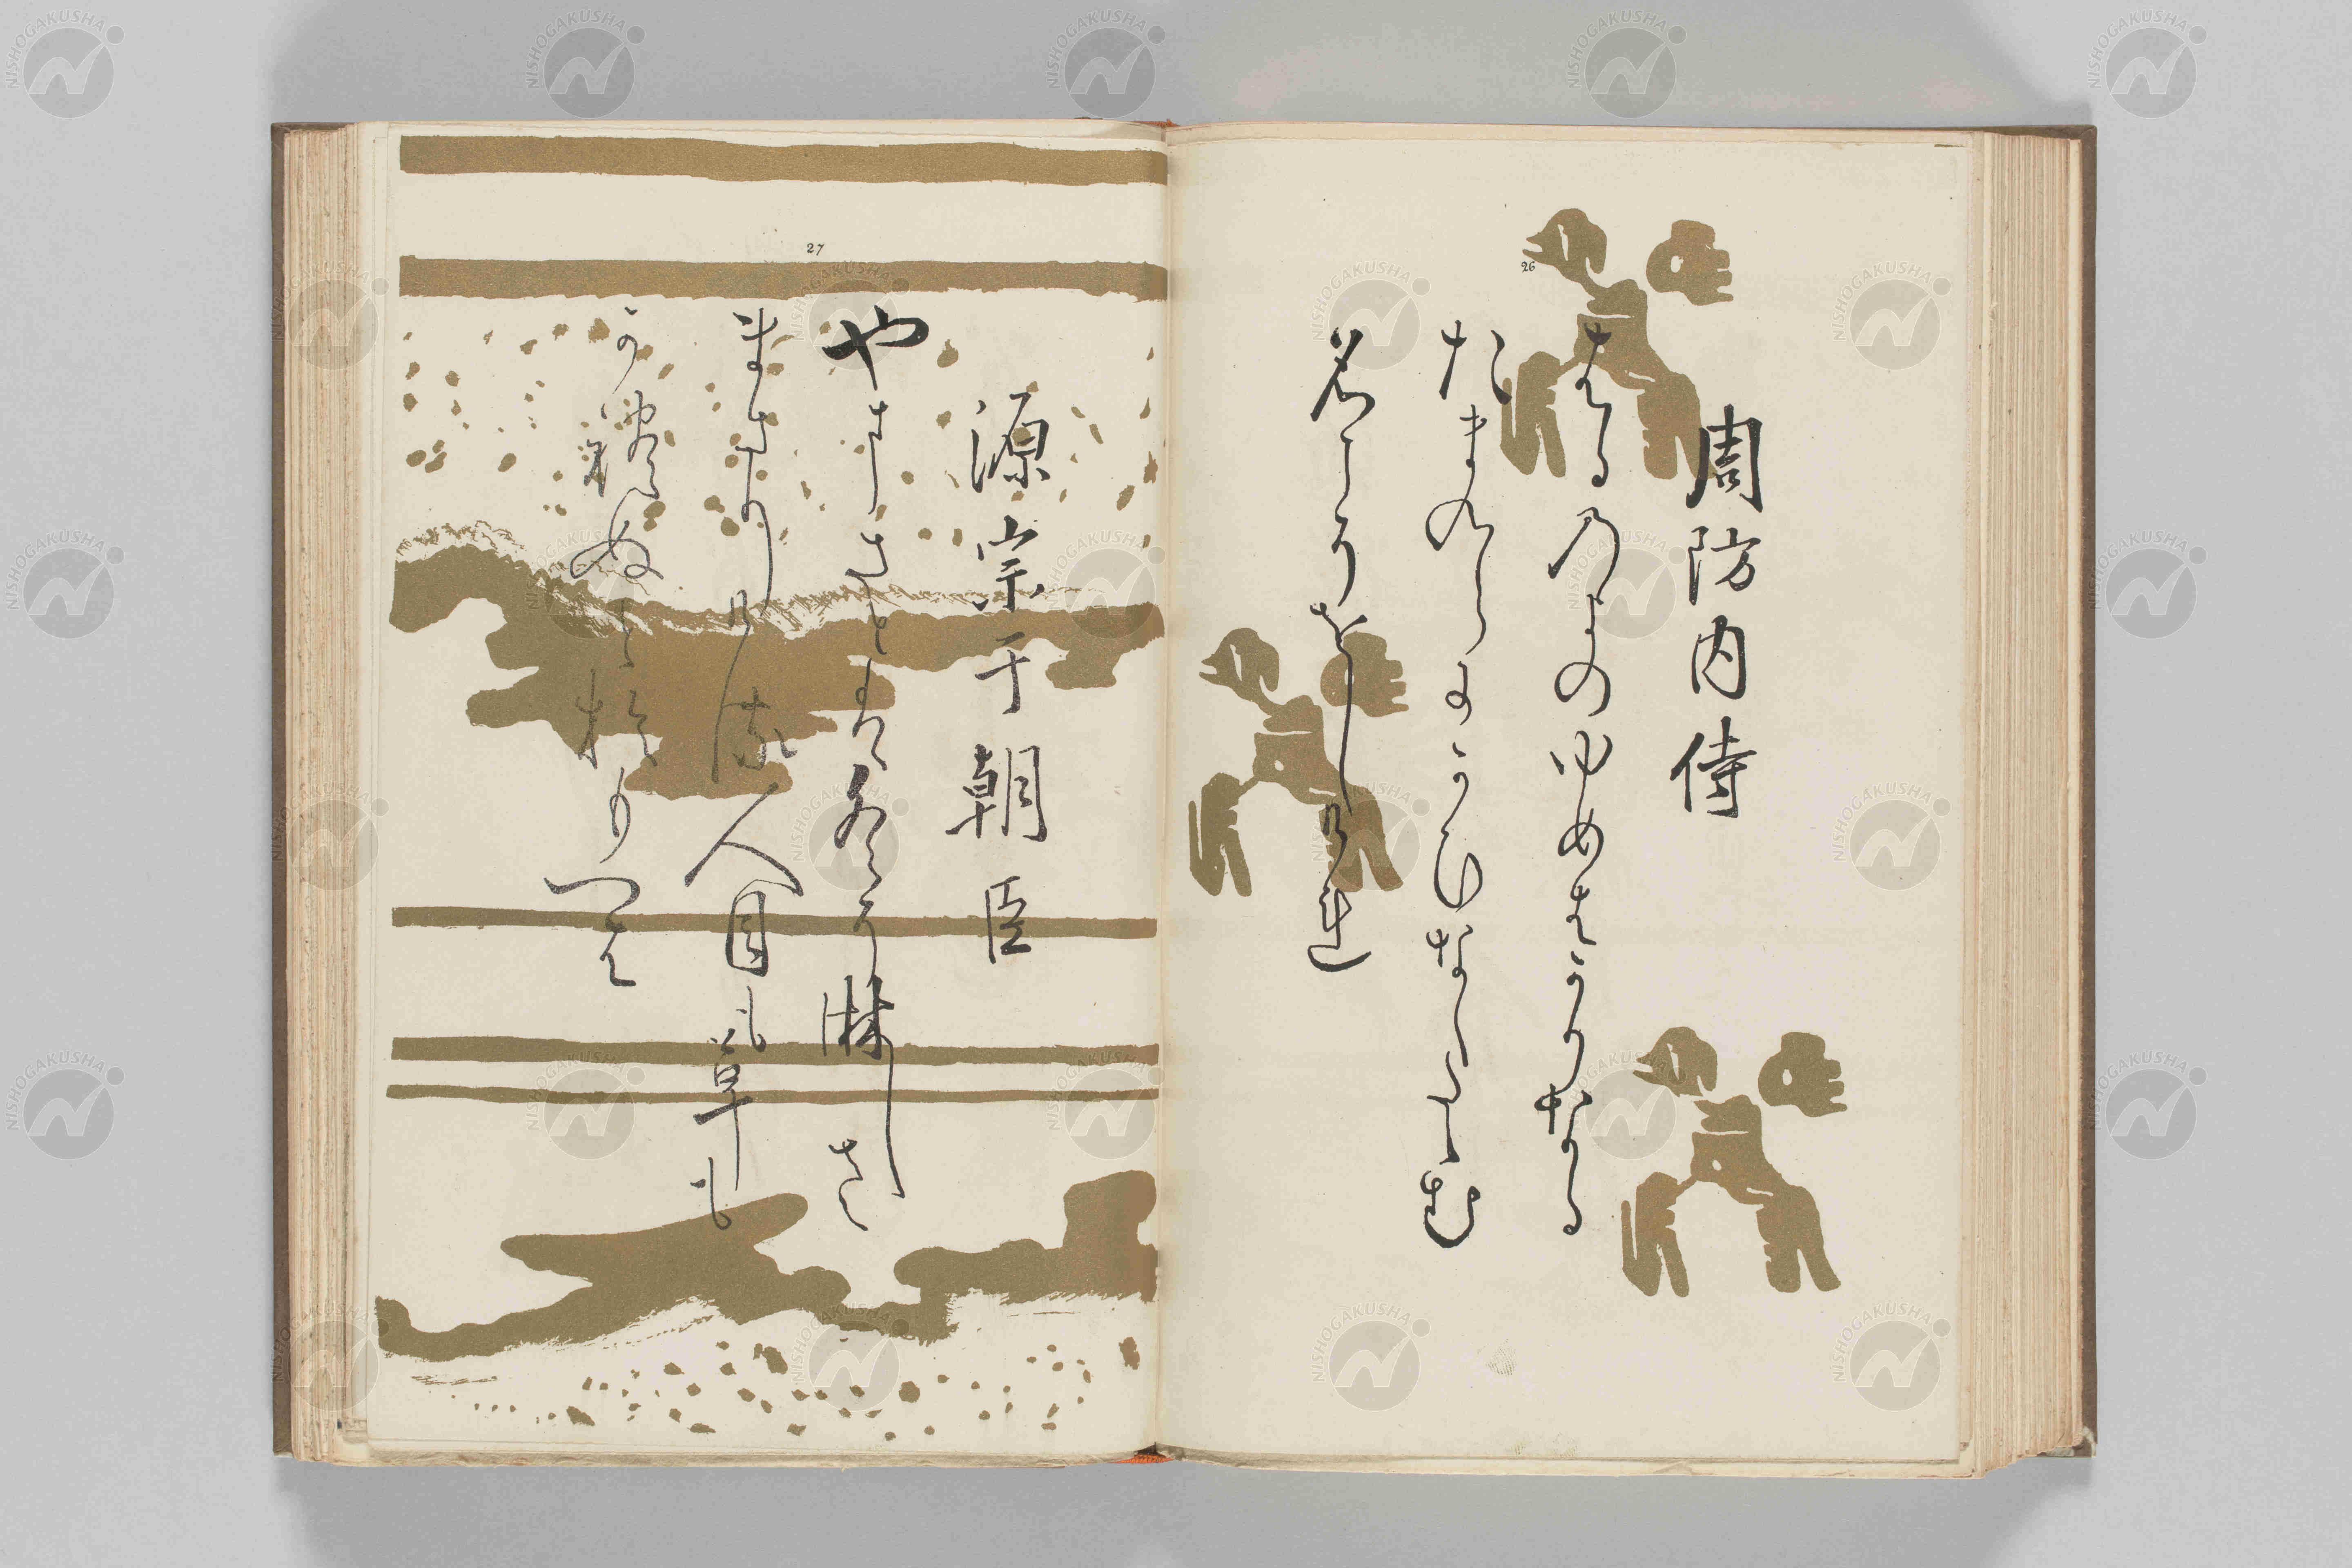 26
周防内侍
はる乃よのゆめはかりなる
たまくらにかひなくたゝむ
名こそをしけれ
27
源宗于朝臣
やまさとは冬そ淋しさ
まさりける人目も草も
かれぬとおもへは
NISHOGAKUSHA